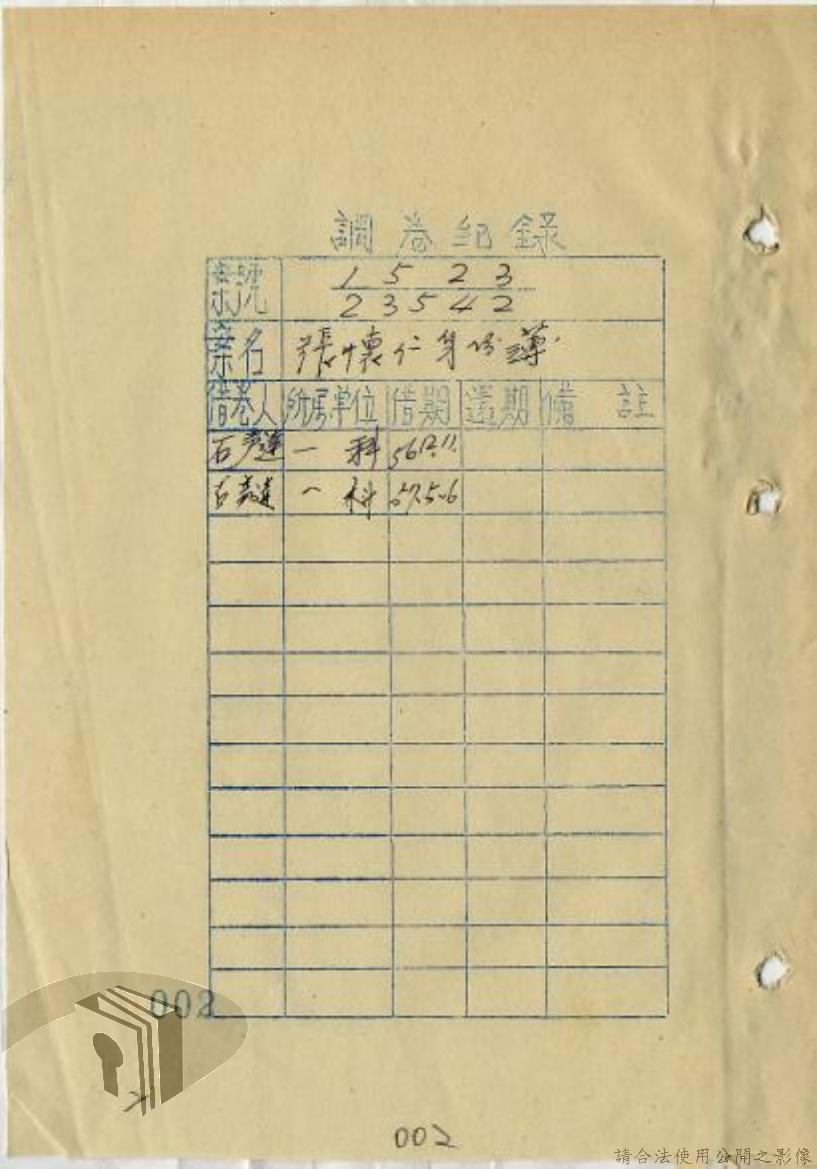 調卷紀錄
案號 1523
23542
案名 張懷仁身份簿
借卷人 所屬单位 借期 還期 備 註
石 一科 56.12.11.
一科 57.5.6
002
002
請合法使用公開之影像